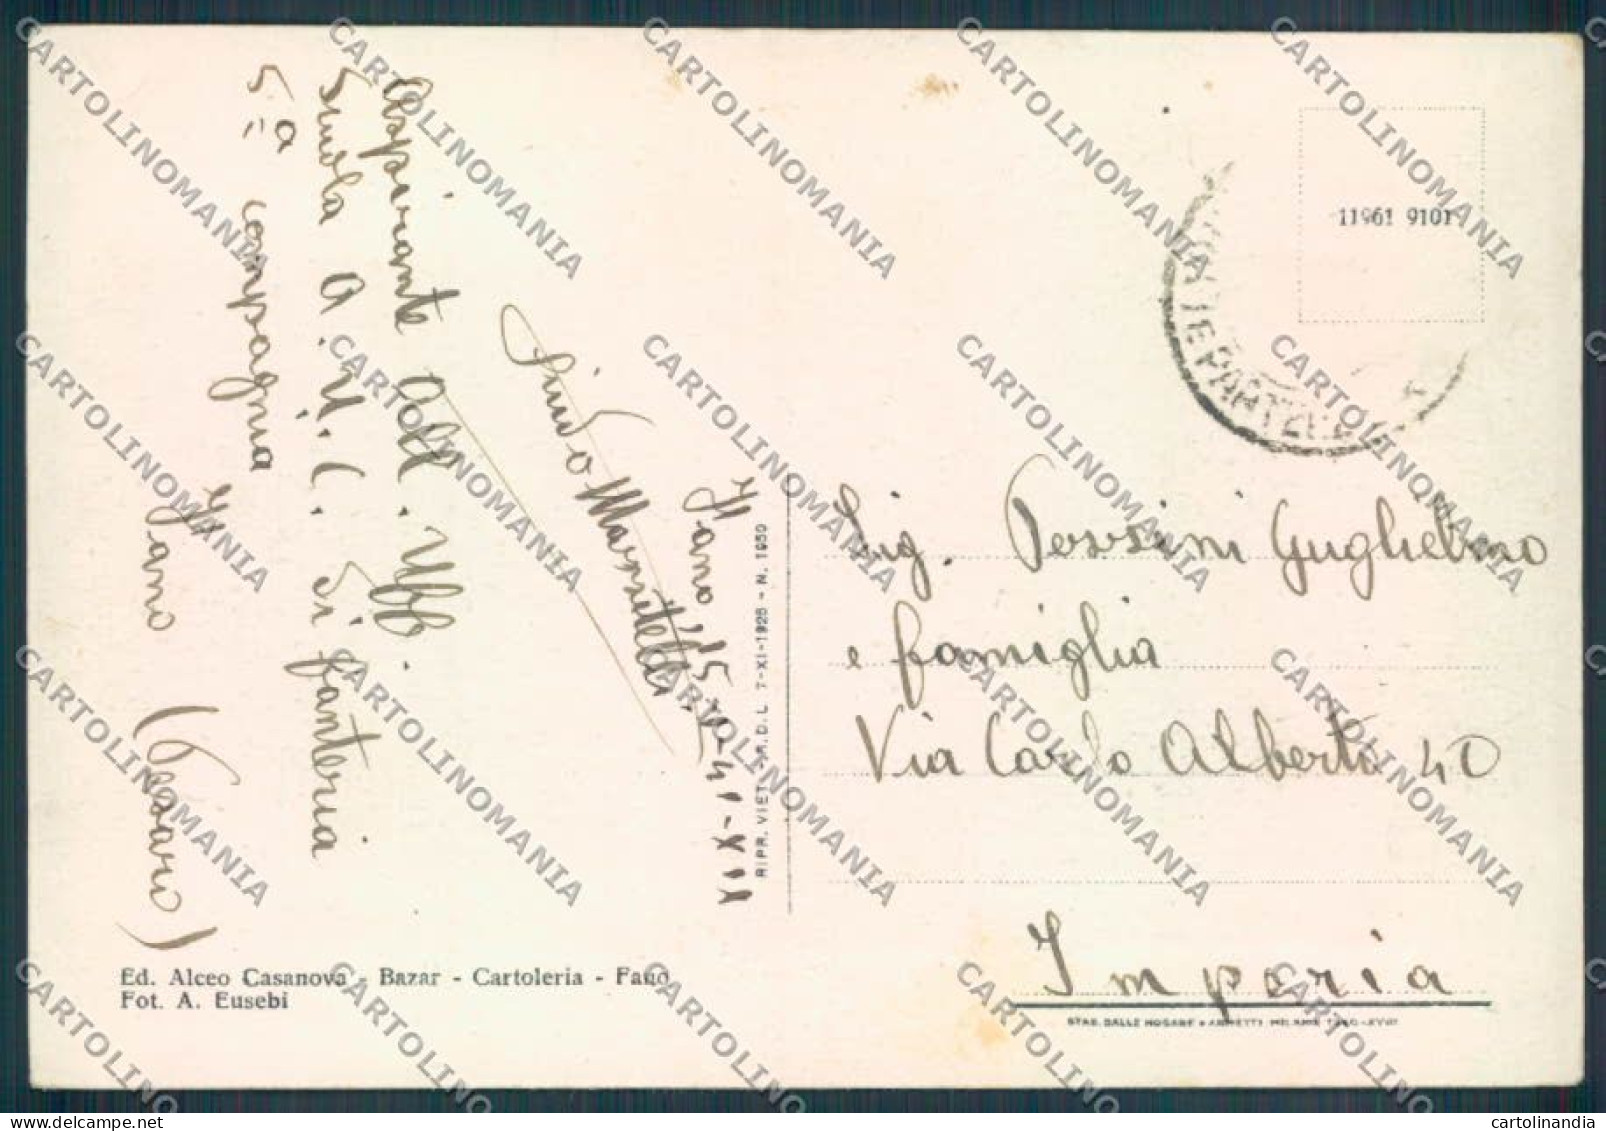 Aspirante all. Uff.
Scuola A.U.C. di fanteria
5ª compagnia
Fano (Pesaro)
Fano 15-2-41-XIX
Ed. Alceo Casanova - Bazar - Cartoleria - Fano
Fot. A. Eusebi
RIPR. VIET. - R.D.L. 7-XI-1925 - N. 1950
11961 9101
Sig. Guglielmo
e famiglia
Via Carlo Alberto 40
Imperia
STAB. DALLE NOGARE e ARMETTI MILANO
cartolinandia